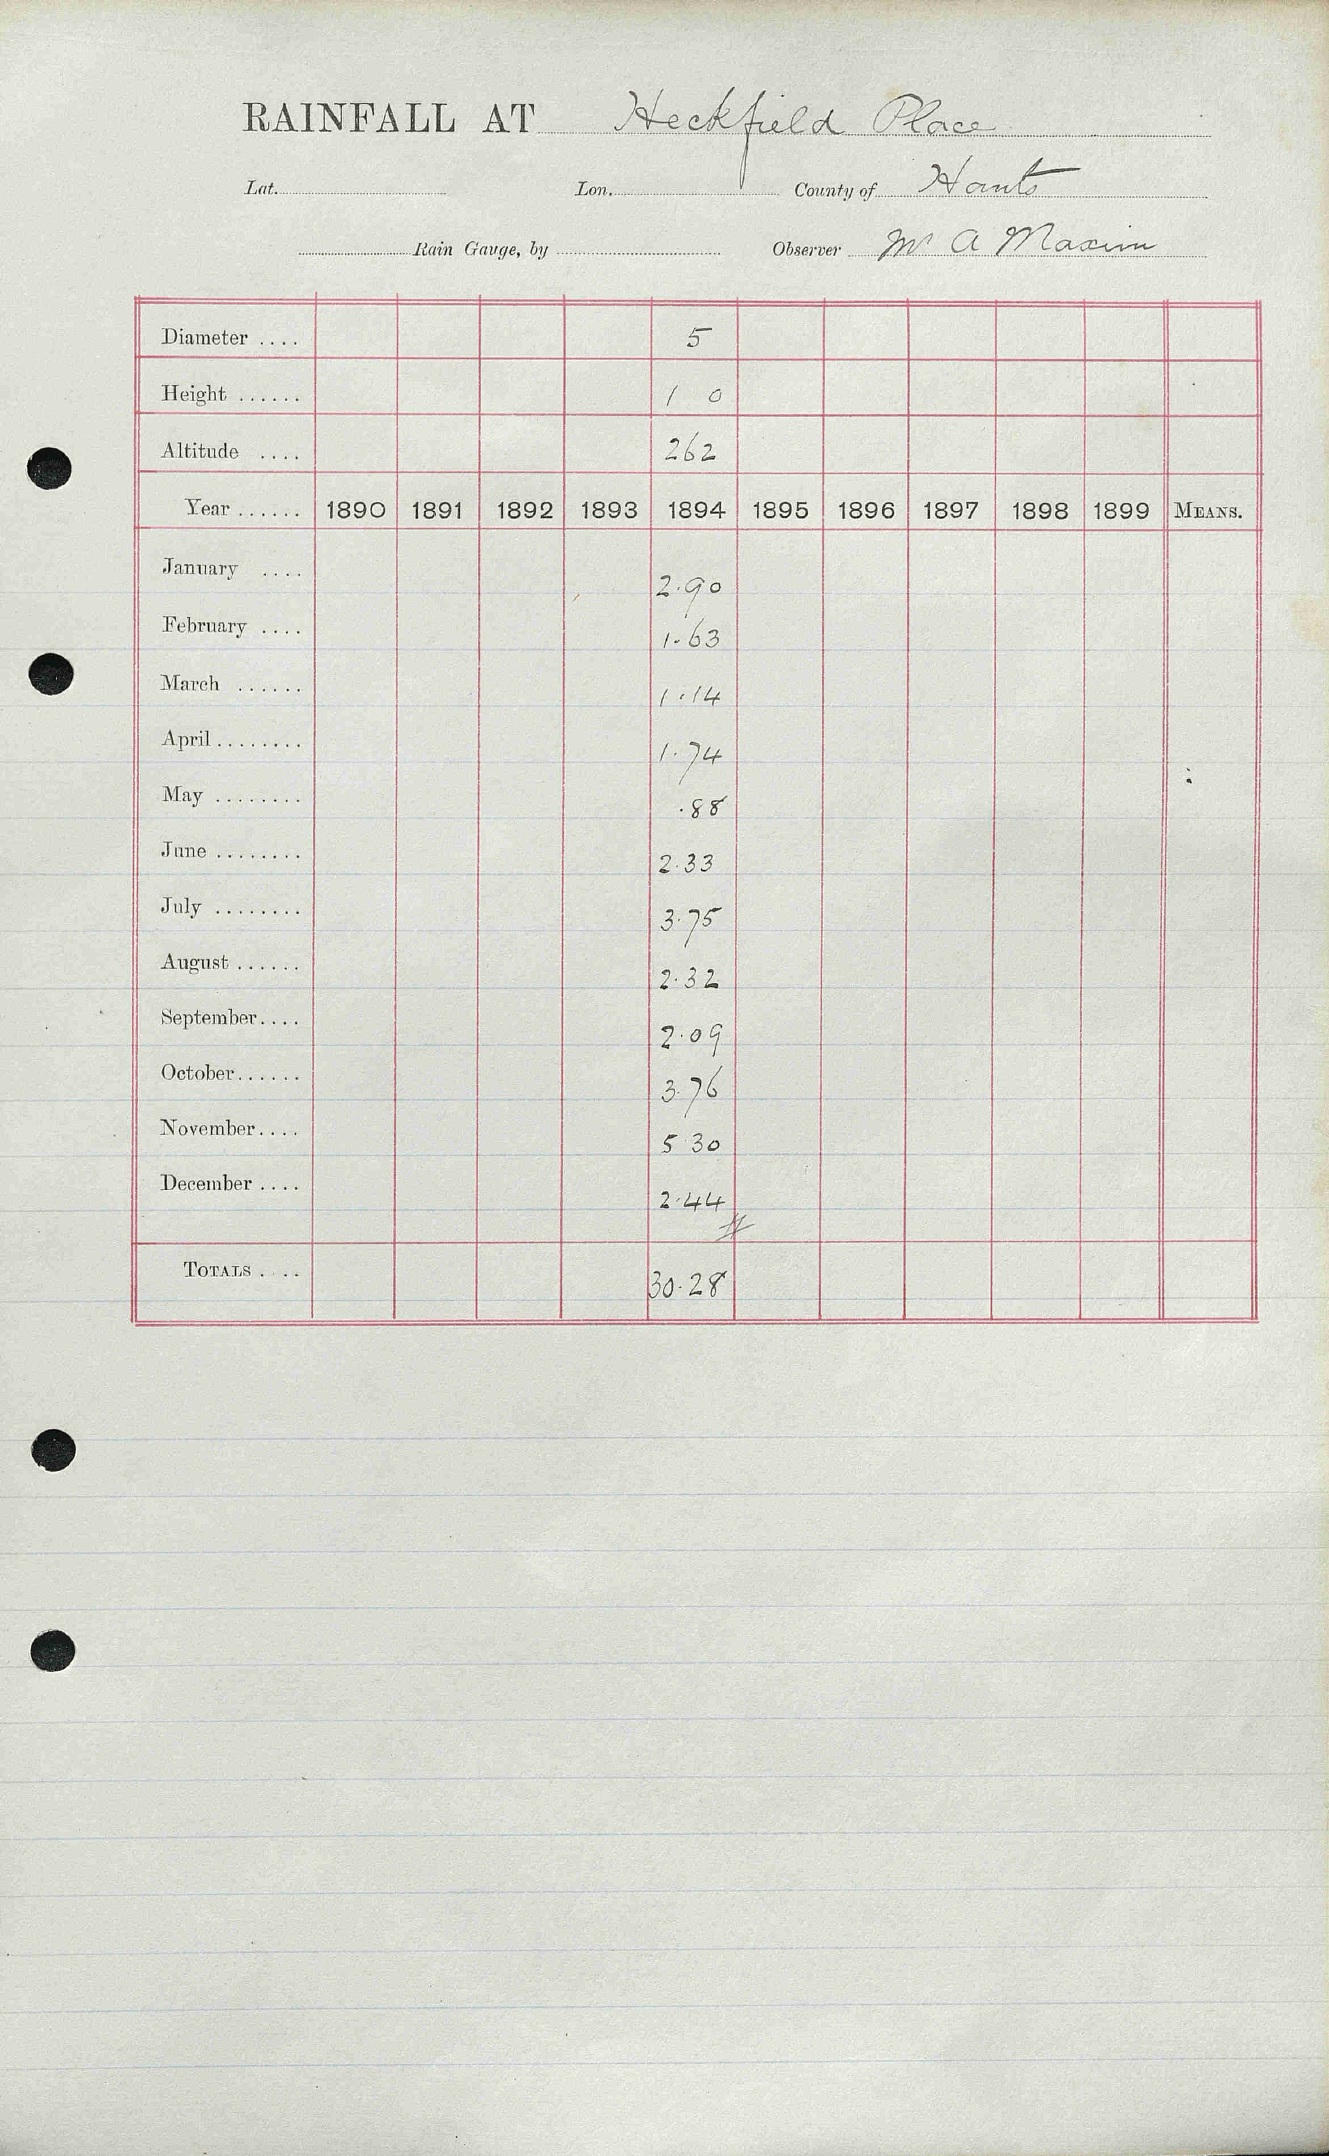 RAINFALL AT Heckfield Place
Lat. Lon. County of Hants
Rain Gauge, by Observer Mr A Maxim
Diameter .... 5
Height ...... 1 0
Altitude .... 262
Year ...... 1890 1891 1892 1893 1894 1895 1896 1897 1898 1899 MEANS.
January .... 2.90
February .... 1.63
March ...... 1.14
April ........ 1.74
May ........ .88
June ........ 2.33
July ........ 3.75
August ...... 2.32
September .... 2.09
October ...... 3.76
November .... 5 30
December .... 2.44
TOTALS .... 30.28